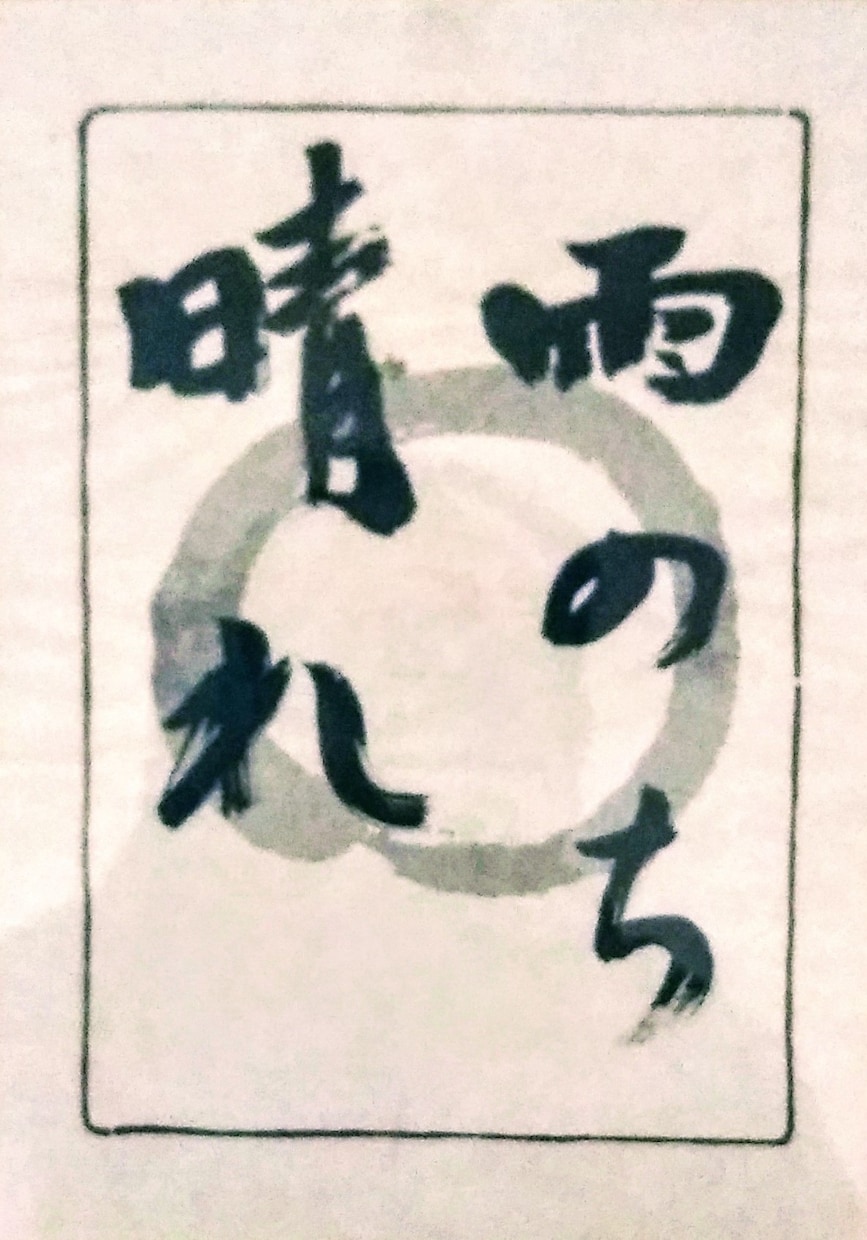 雨のち
晴れ